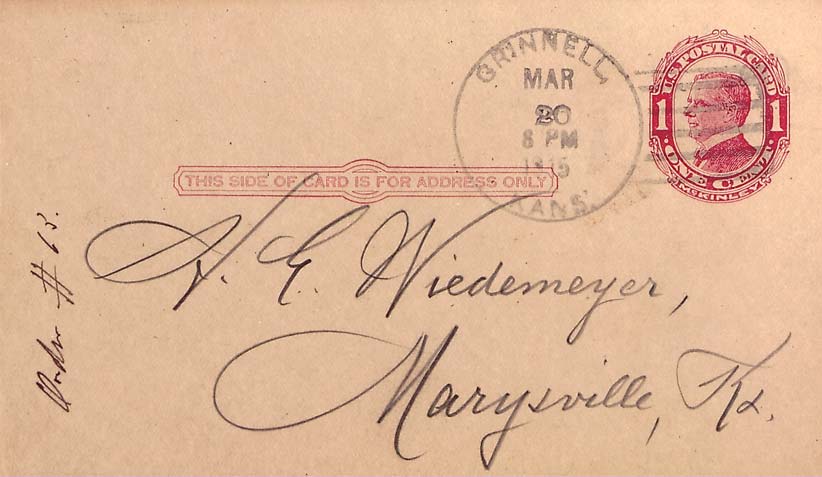 GRINNELL,
MAR
20
8 PM
1915
KANS.
U.S. POSTAL CARD
1 1
ONE CENT
McKINLEY
THIS SIDE OF CARD IS FOR ADDRESS ONLY
H. E. Wiedemeyer,
Marysville, Ks.
Order # 13.